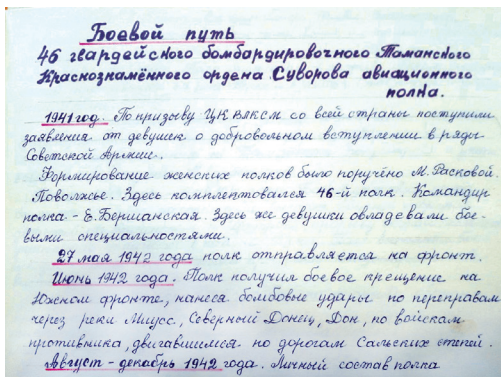 Боевой путь
46 гвардейского бомбардировочного Таманского
Краснознамённого ордена Суворова авиационного
полка.
1941 год. По призыву ЦК ВЛКСМ со всей страны поступили
заявления от девушек о добровольном вступлении в ряды
Советской Армии.
Формирование женских полков было поручено М. Расковой.
Поволжье. Здесь комплектовался 46-й полк. Командир
полка - Е. Бершанская. Здесь же девушки овладевали бое-
выми специальностями.
27 мая 1942 года полк отправляется на фронт.
Июнь 1942 года. Полк получил боевое крещение на
Южном фронте, нанеся бомбовые удары по переправам
через реки Миусс, Северный Донец, Дон, по войскам
противника, двигавшимся по дорогам Сальских степей.
Август - декабрь 1942 года. Личный состав полка